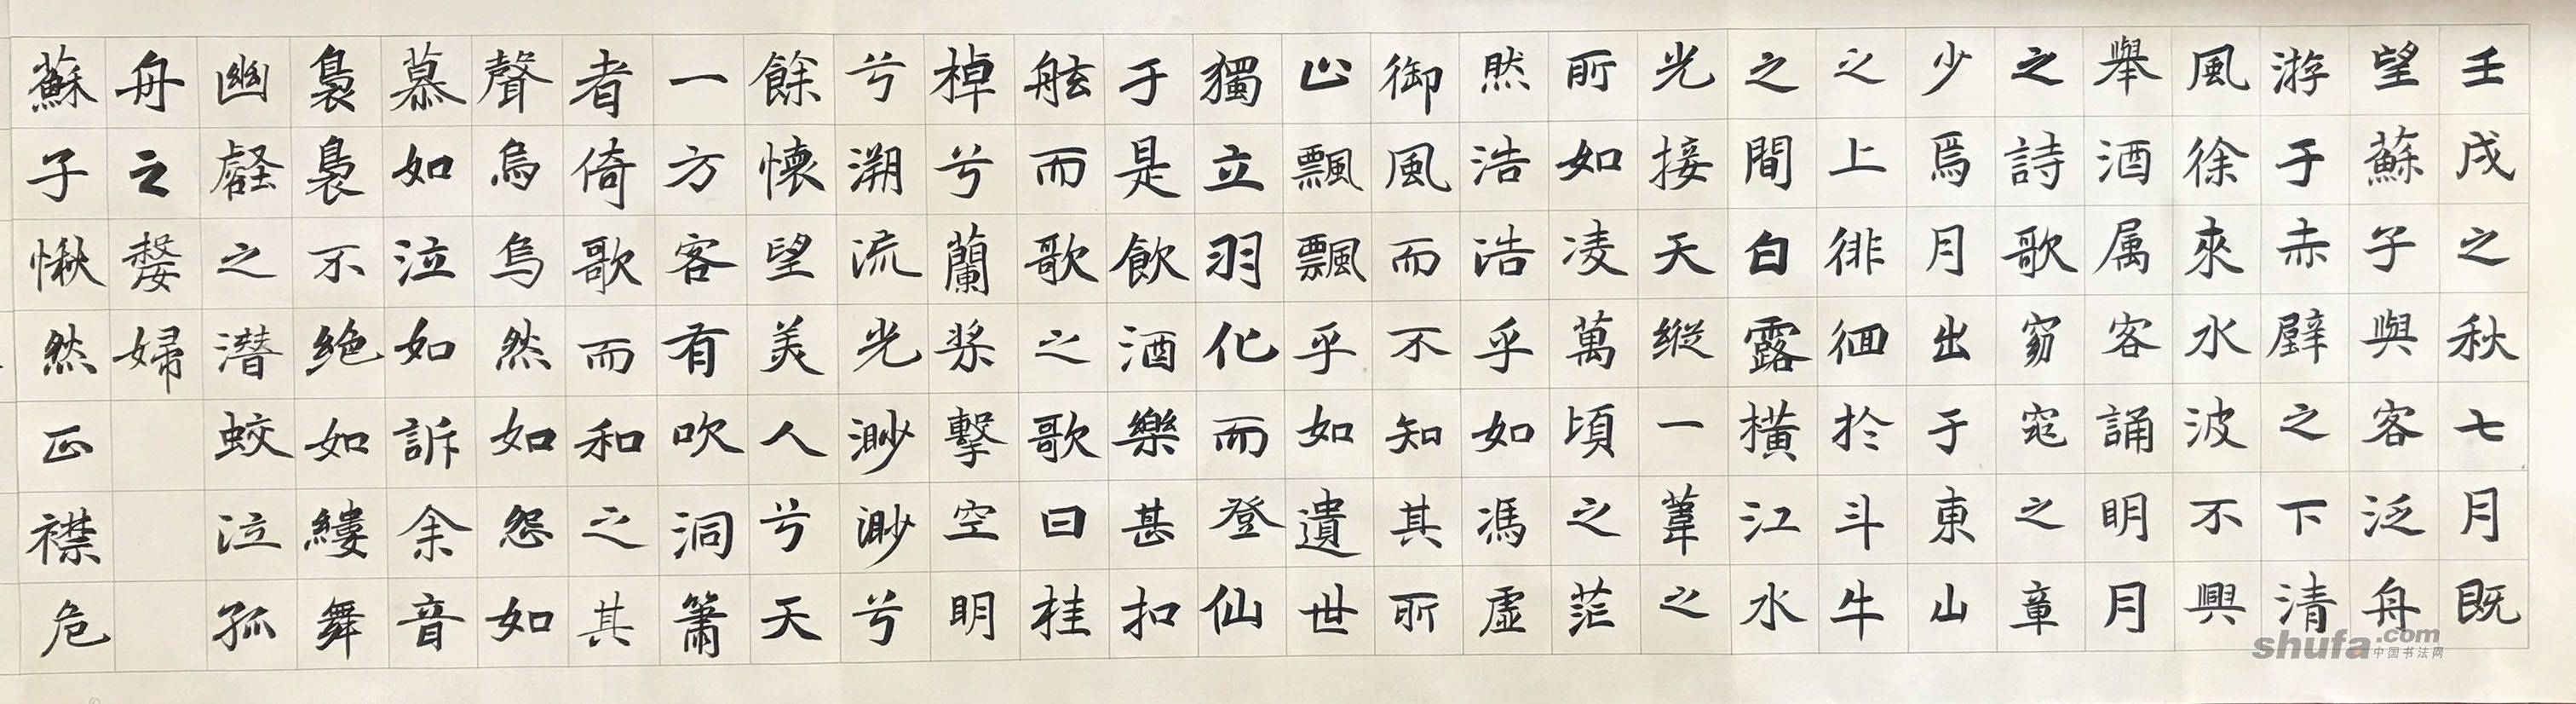 壬戌之秋七月既
望蘇子與客泛舟
游于赤壁之下清
風徐來水波不興
舉酒属客誦明月
之詩歌窈窕之章
少焉月出于東山
之上徘徊於斗牛
之間白露橫江水
光接天縱一葦之
所如凌萬頃之茫
然浩浩乎如馮虛
御風而不知其所
止飄飄乎如遺世
獨立羽化而登仙
于是飲酒樂甚扣
舷而歌之歌曰桂
棹兮蘭槳擊空明
兮溯流光渺渺兮
餘懷望美人兮天
一方客有吹洞簫
者倚歌而和之其
聲烏烏然如怨如
慕如泣如訴余音
裊裊不絶如縷舞
幽壑之潛蛟泣孤
舟之嫠婦
蘇子愀然正襟危
shufa.com
中国书法网